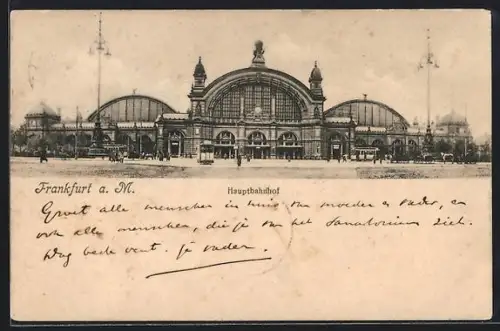 Frankfurt a. M.
Hauptbahnhof
Groet alle menschen in huis van moeder en vader, en
ook alle menschen, die je van het Sanatorium ziet.
Dag beste vent. Je vader.